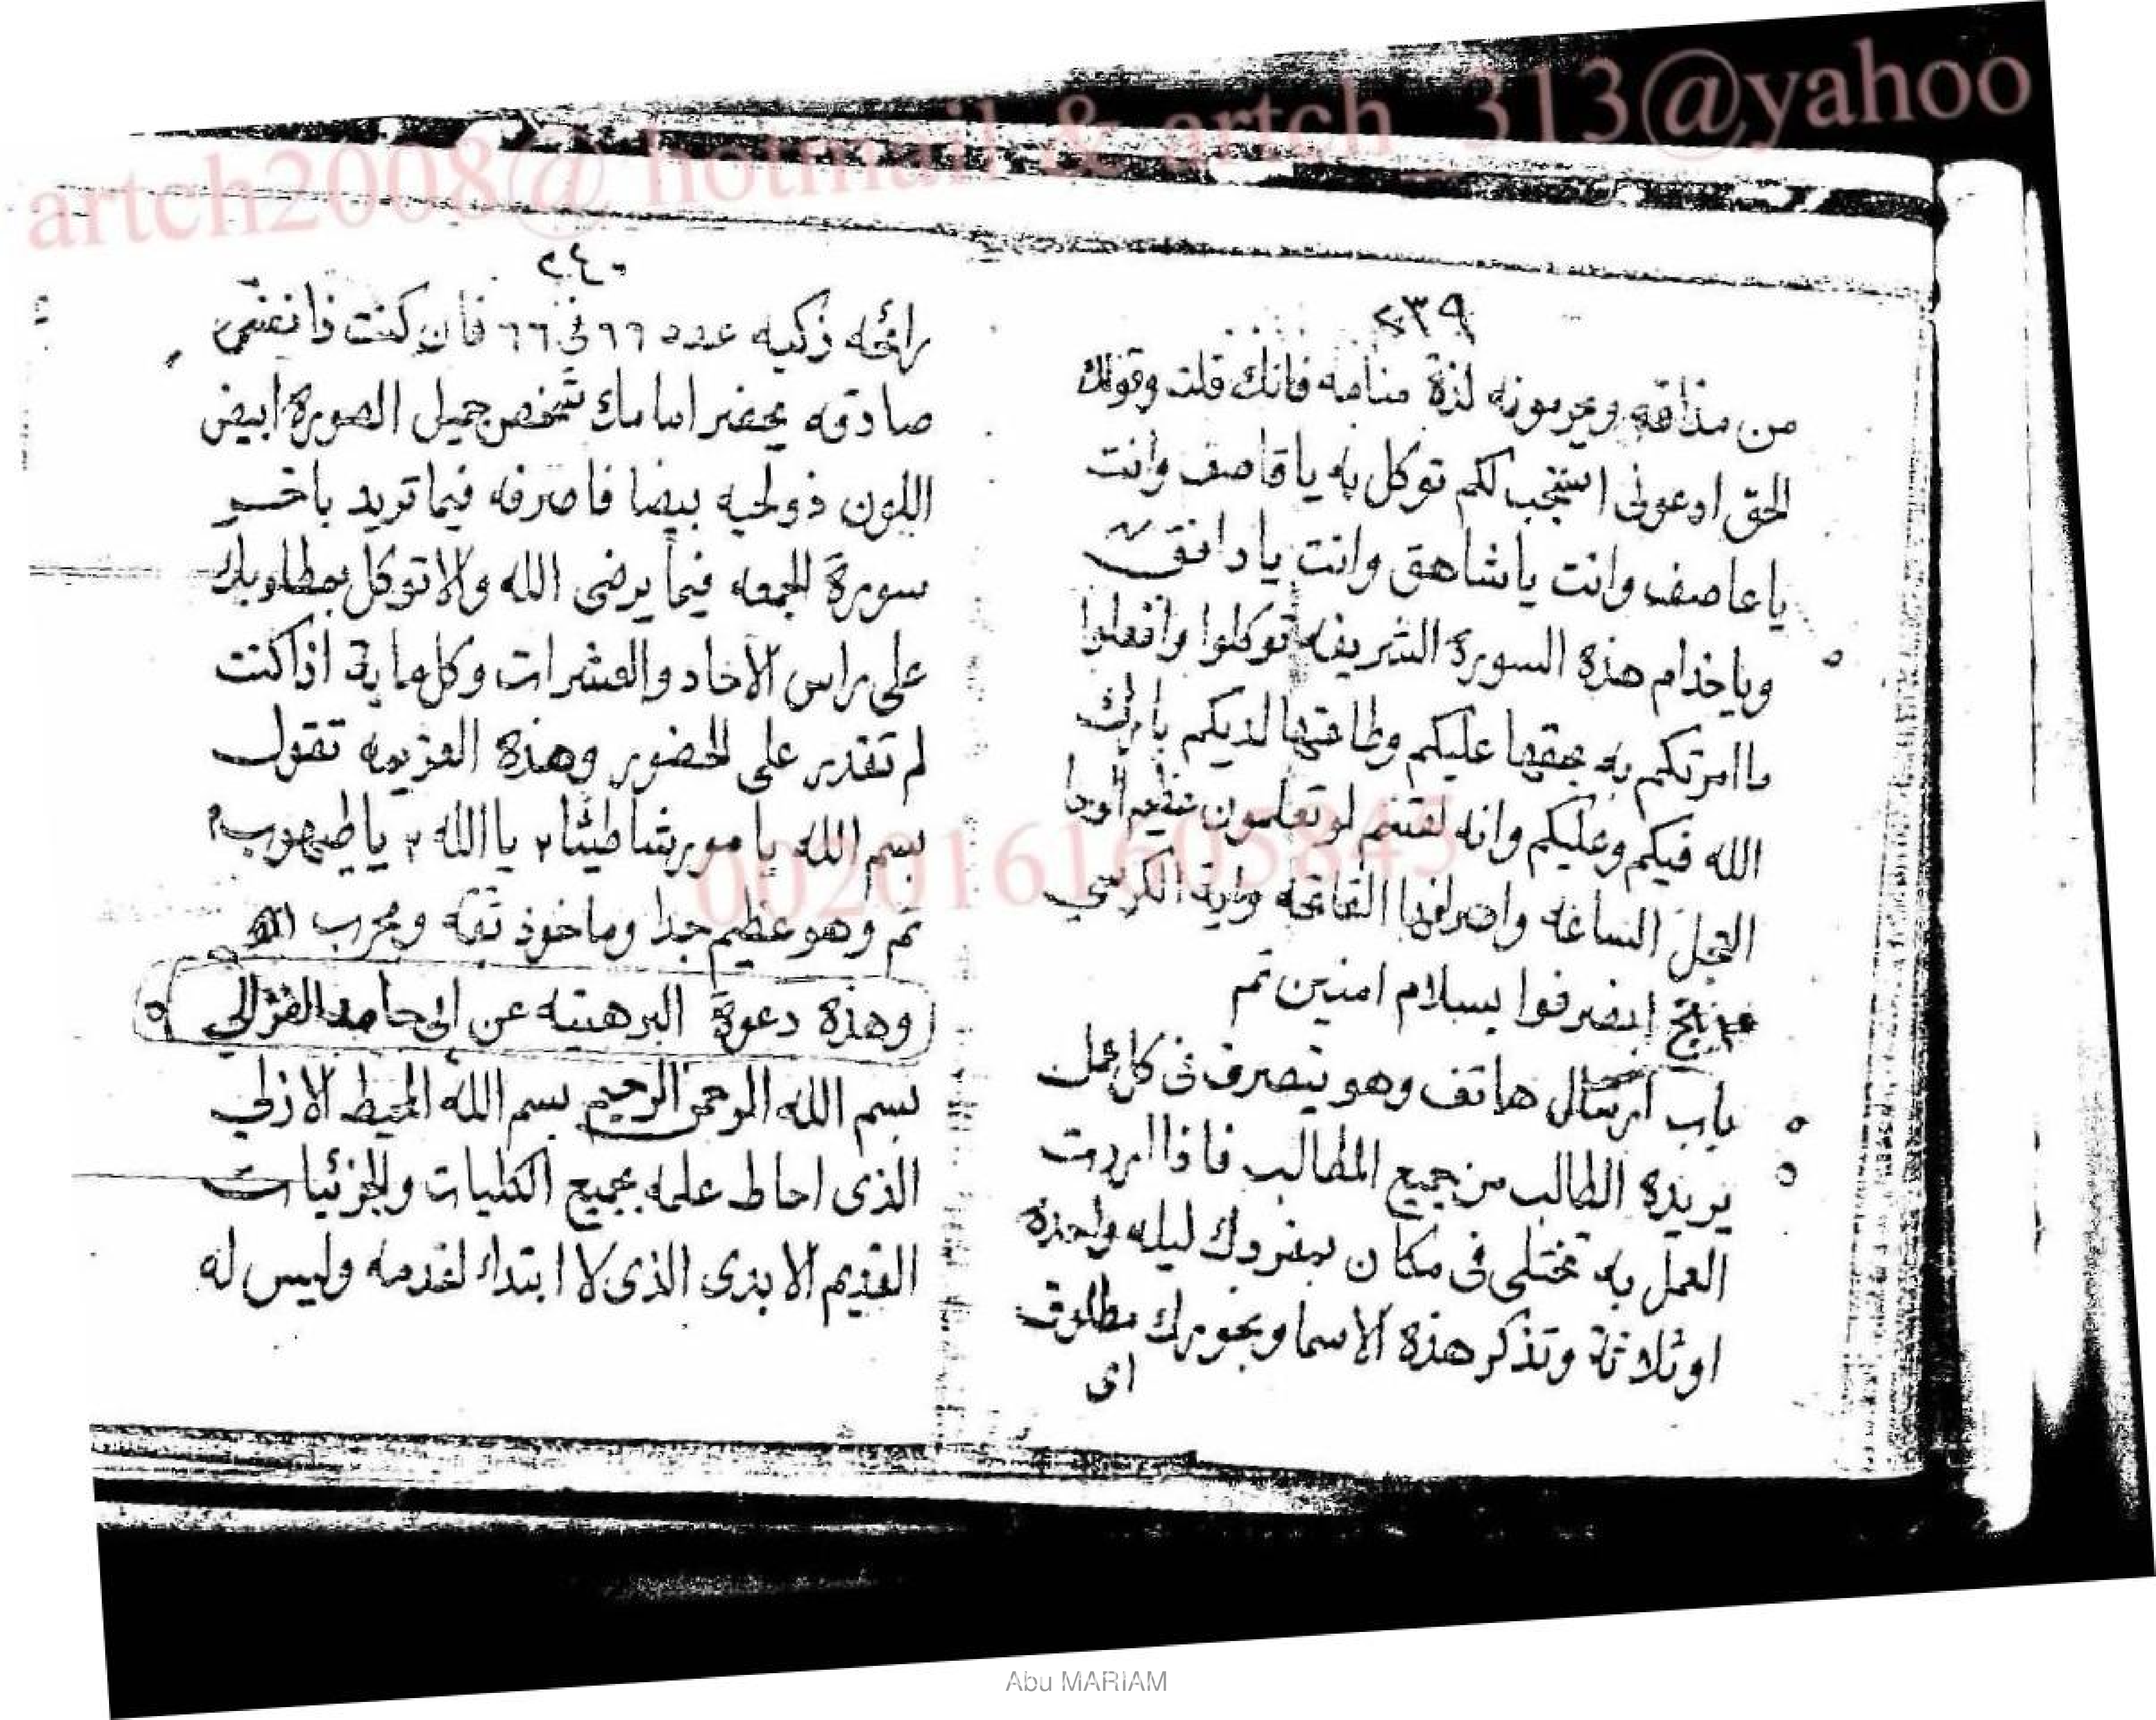 artch2008@ hotmail & artch_313@yahoo
٢٣٩
من مذاقه ويحرموزنه لذة منامه فانك قلت وقولك
الحق ادعونى استجب لكم توكل به يا قاصف وانت
يا عاصف وانت يا شاهق وانت يا دانق
وياخذام هذه السورة الشريفه توكلوا وافعلوا
ما امرتكم به بحقها عليكم وطاعتها لديكم بارك
الله فيكم وعليكم وانه لقسم لو تعلمون عظيم الوحا
العجل الساعه واصرفها الفاتحه واية الكرسي
انصرفوا بسلام امنين تم
باب ارسال هاتف وهو يتصرف فى كل عمل
يريده الطالب من جميع المطالب فاذا اردت
العمل به تختلى فى مكان بمفردك ليله واحده
او ثلاثة وتذكر هذه الاسما وبخورك مطلوق
اى
٢٤٠
رائحه زكيه عدد ٦٦ فى ٦٦ فان كنت ذا نفس
صادقه يحضر امامك شخص جميل الصورة ابيض
اللون ذو لحيه بيضا فاصرفه فيما تريد باخر
سورة الجمعه فيما يرضى الله والا توكل بمطلوبك
على راس الآحاد والعشرات وكل ماية اذا كنت
لم تقدر على الحضور وهذه العزيمه تقول
بسم الله يا مورشاطيثا ٢ يا الله ٢ يا طيهوب ٢
تم وهو عظيم جدا وماخوذ ثقه ومجرب
وهذه دعوة البرهتيه عن ابى حامد الغزالي
بسم الله الرحمن الرحيم بسم الله المحيط الازلي
الذى احاط علمه بجميع الكليات والجزئيات
القديم الابدى الذى لا ابتداء لقدمه وليس له
0020161605845
Abu MARIAM